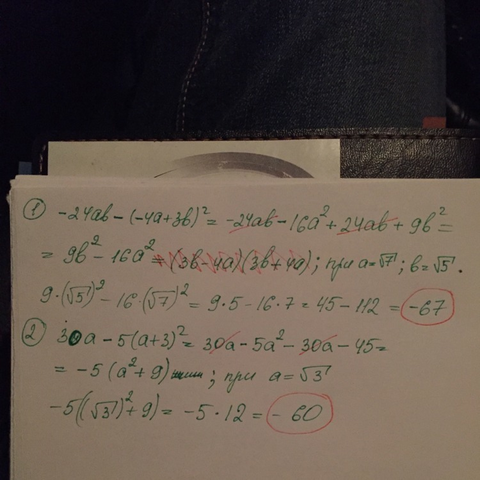 ① -24ab-(-4a+3b)² = -24ab-16a²+24ab+9b² =
= 9b²-16a² = (3b-4a)(3b+4a); при a=√7; b=√5.
9·(√5)²-16·(√7)² = 9·5-16·7 = 45-112 = -67
② 30a-5(a+3)² = 30a-5a²-30a-45 =
= -5(a²+9); при a=√3
-5((√3)²+9) = -5·12 = -60